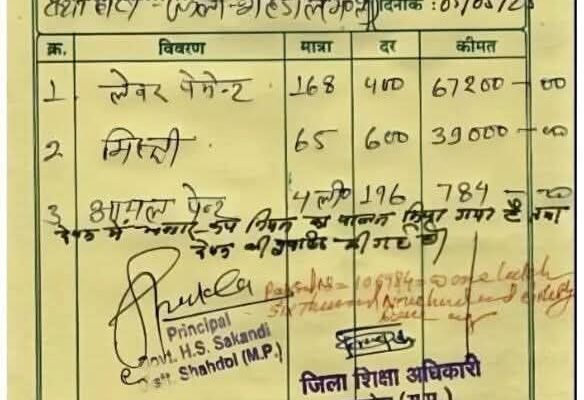 दिनांक :
क्र. विवरण मात्रा दर कीमत
1 लेवर पेमेन्ट 168 400 67200 - 00
2 मिस्त्री 65 600 39000 - 00
3 आयल पेन्ट 4 ली० 196 784 - 00
नियम का पालन किया गया है तथा
की गई है
Shukla
Passed Rs = 106984 = 00 one lakh
Six thousand Nine hundred and eighty
Principal
Govt. H.S. Sakandi
Distt. Shahdol (M.P.)
जिला शिक्षा अधिकारी